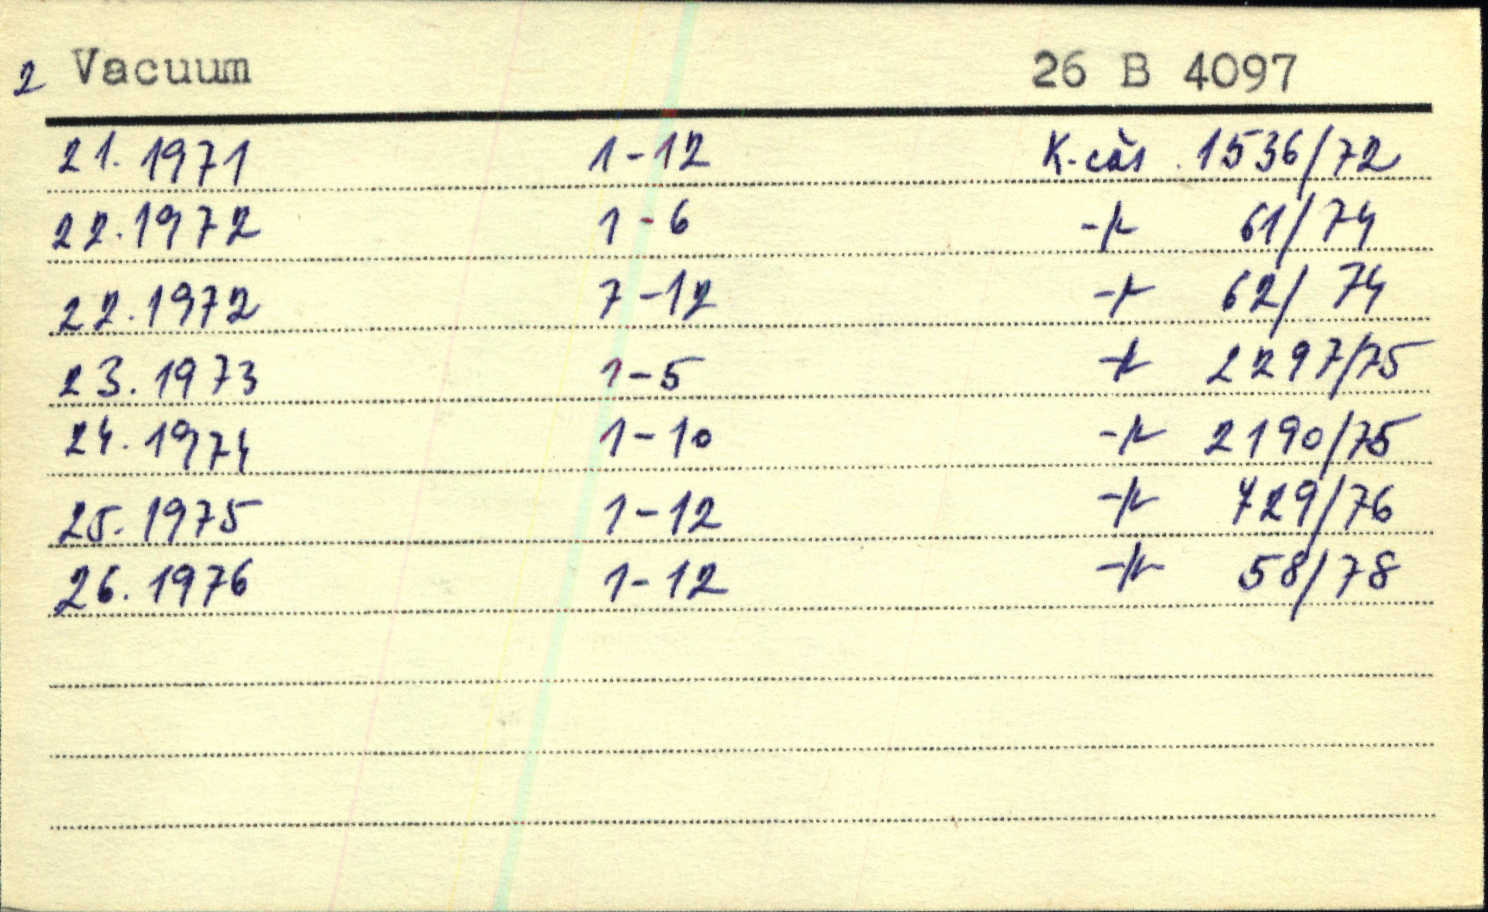 2 Vacuum 26 B 4097
21. 1971 1-12 K-čás 1536/72
22. 1972 1-6 -11- 61/74
22. 1972 7-12 -11- 62/74
23. 1973 1-5 -11- 2297/75
24. 1974 1-10 -11- 2190/75
25. 1975 1-12 -11- 729/76
26. 1976 1-12 -11- 58/78